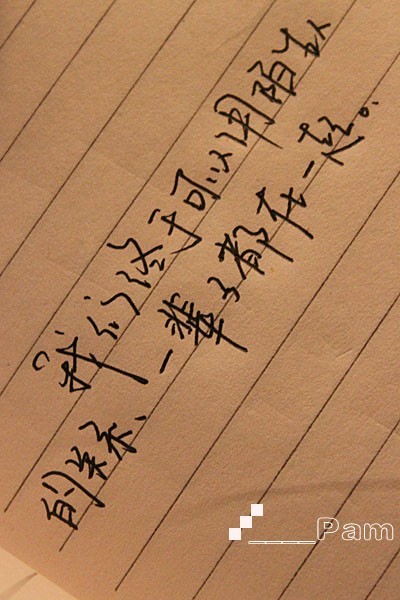 我们终于可以用陌生人
的关系、一辈子都在一起。
____Pam